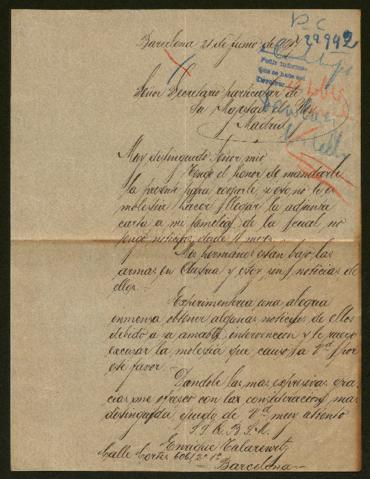 Barcelona 21 de junio de
Señor Secretario particular de
Su Majestad el Rey
Madrid
Muy distinguido Señor mio
Tengo el honor de mandarle
la presente para rogarle, si eso no le es
molestia hacer llegar la adjunta
carta a mi familia de la cual no
tengo noticias desde
Mis hermanos estan bajo las
armas en Austria y estoy sin noticias de
ellos.
Experimentaria una alegria
inmensa obtener algunas noticias de ellos
debido a su amable intervencion y le ruego
excusar la molestia que causo a Vd por
ese favor.
Dandole las mas expresivas gra
cias me ofrezco con las consideraciones mas
distinguidas quedo de Vd muy atento
Enrique
Calle Cortes 606
Barcelona